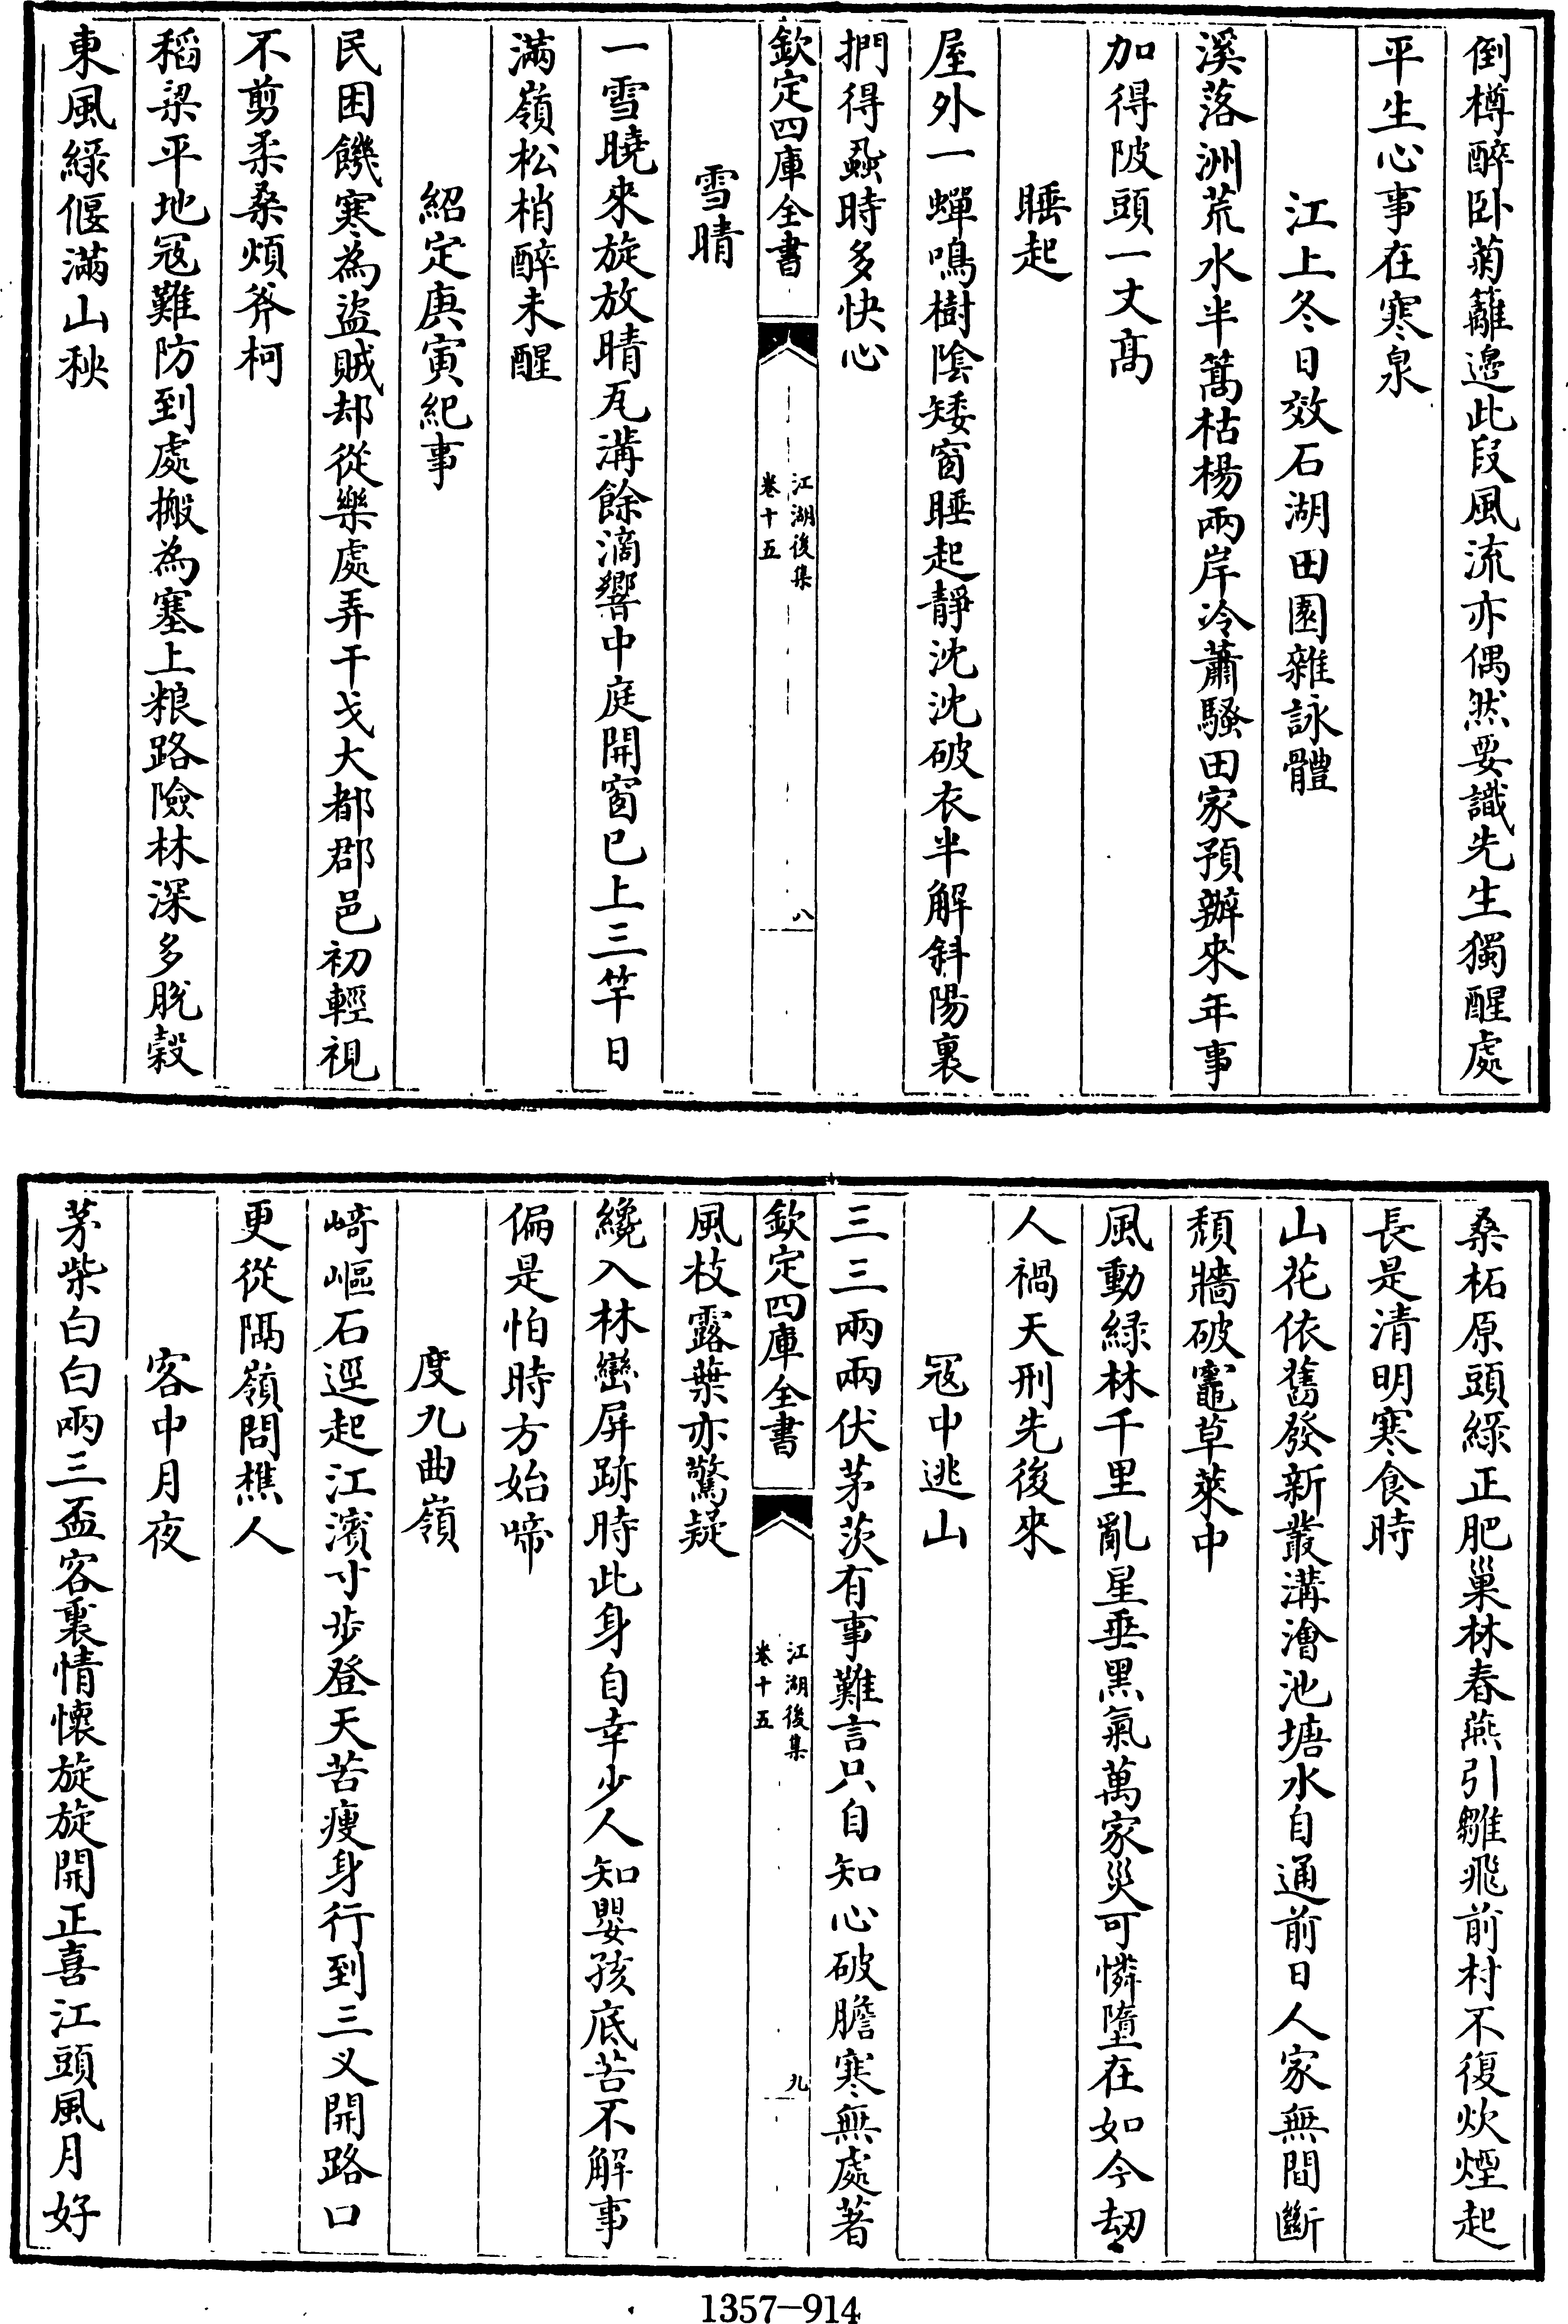 倒樽醉卧菊籬邊此段風流亦偶然要識先生獨醒處
平生心事在寒泉
江上冬日效石湖田園雜詠體
溪落洲荒水半篙枯楊兩岸冷蕭騷田家預辦來年事
加得陂頭一丈髙
睡起
屋外一蟬鳴樹陰矮窗睡起靜沈沈破衣半解斜陽裏
捫得蝨時多快心
欽定四庫全書
江湖後集
卷十五
八
雪晴
一雪曉來旋放晴瓦溝餘滴響中庭開窗已上三竿日
滿嶺松梢醉未醒
紹定庚寅紀事
民困饑寒為盜賊却從樂處弄干戈大都郡邑初輕視
不剪柔桑煩斧柯
稻粱平地冦難防到處搬為塞上粮路險林深多脫穀
東風綠偃滿山秧
桑柘原頭綠正肥巢林春燕引雛飛前村不復炊煙起
長是清明寒食時
山花依舊發新叢溝澮池塘水自通前日人家無間斷
頽牆破竈草萊中
風動綠林千里亂星垂黑氣萬家災可憐墮在如今刼
人禍天刑先後來
冦中逃山
三三兩兩伏茅茨有事難言只自知心破膽寒無處著
欽定四庫全書
江湖後集
卷十五
九
風枝露葉亦驚疑
纔入林巒屏跡時此身自幸少人知嬰孩底苦不解事
偏是怕時方始啼
度九曲嶺
崎嶇石逕起江濱寸步登天苦瘦身行到三义開路口
更從隔嶺問樵人
客中月夜
茅柴白白兩三盃客裏情懷旋旋開正喜江頭風月好
1357-914